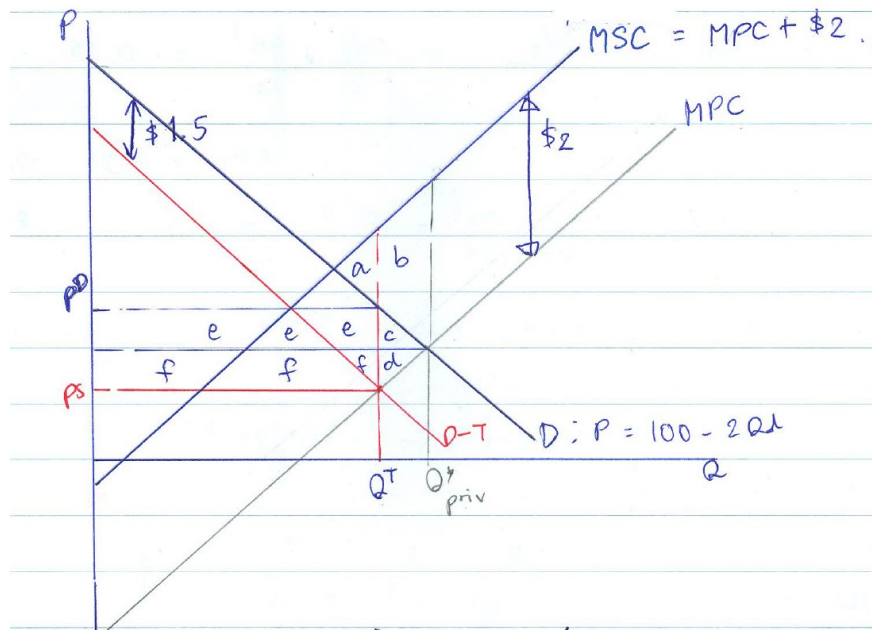 P
MSC = MPC + $2.
MPC
$1.5
$2
a b
pD
e e e c
f f f d
pS
D-T
D : P = 100 - 2Qd
Q^T
Q*
priv
Q